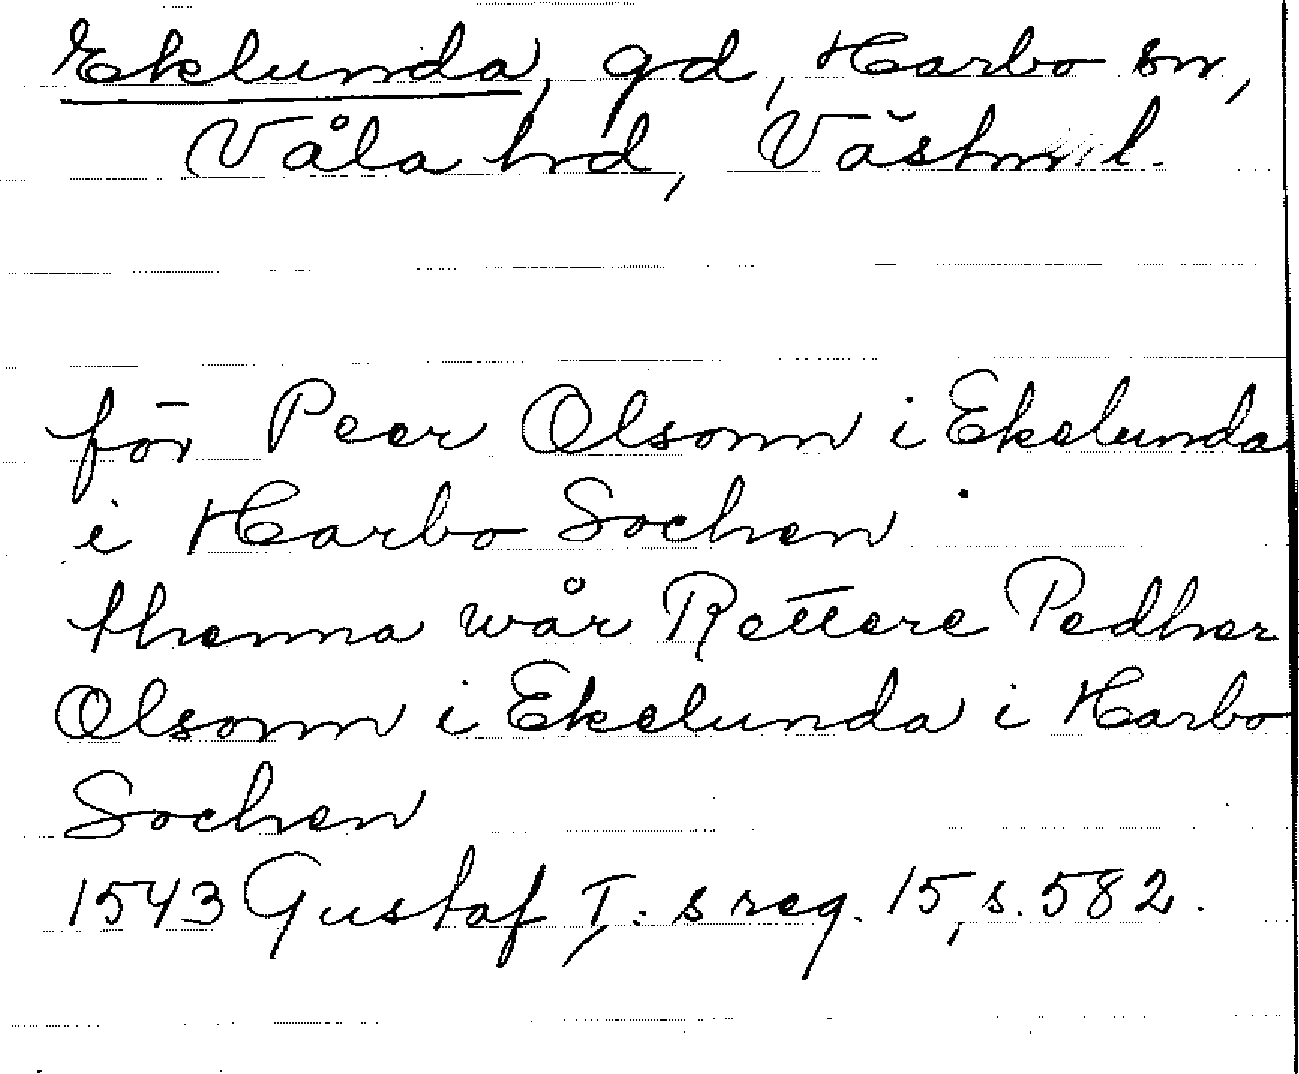 Eklunda, gd, Harbo sn,
Våla hrd, Västml.
för Peer Olsonn i Ekelunda
i Harbo Sochen
thenna wår Rettere Pedher
Olsonn i Ekelunda i Harbo
Sochen
1543 Gustaf I:s reg. 15, s. 582.